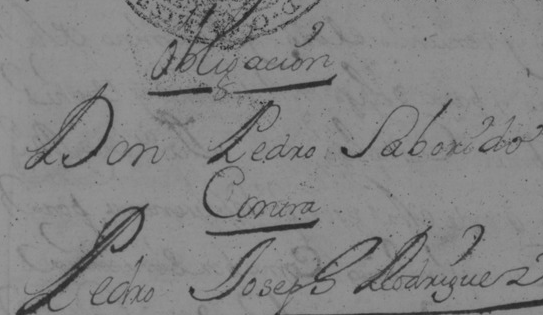 Obligación
Don Pedro Saborido
Contra
Pedro Joseph Rodriguez